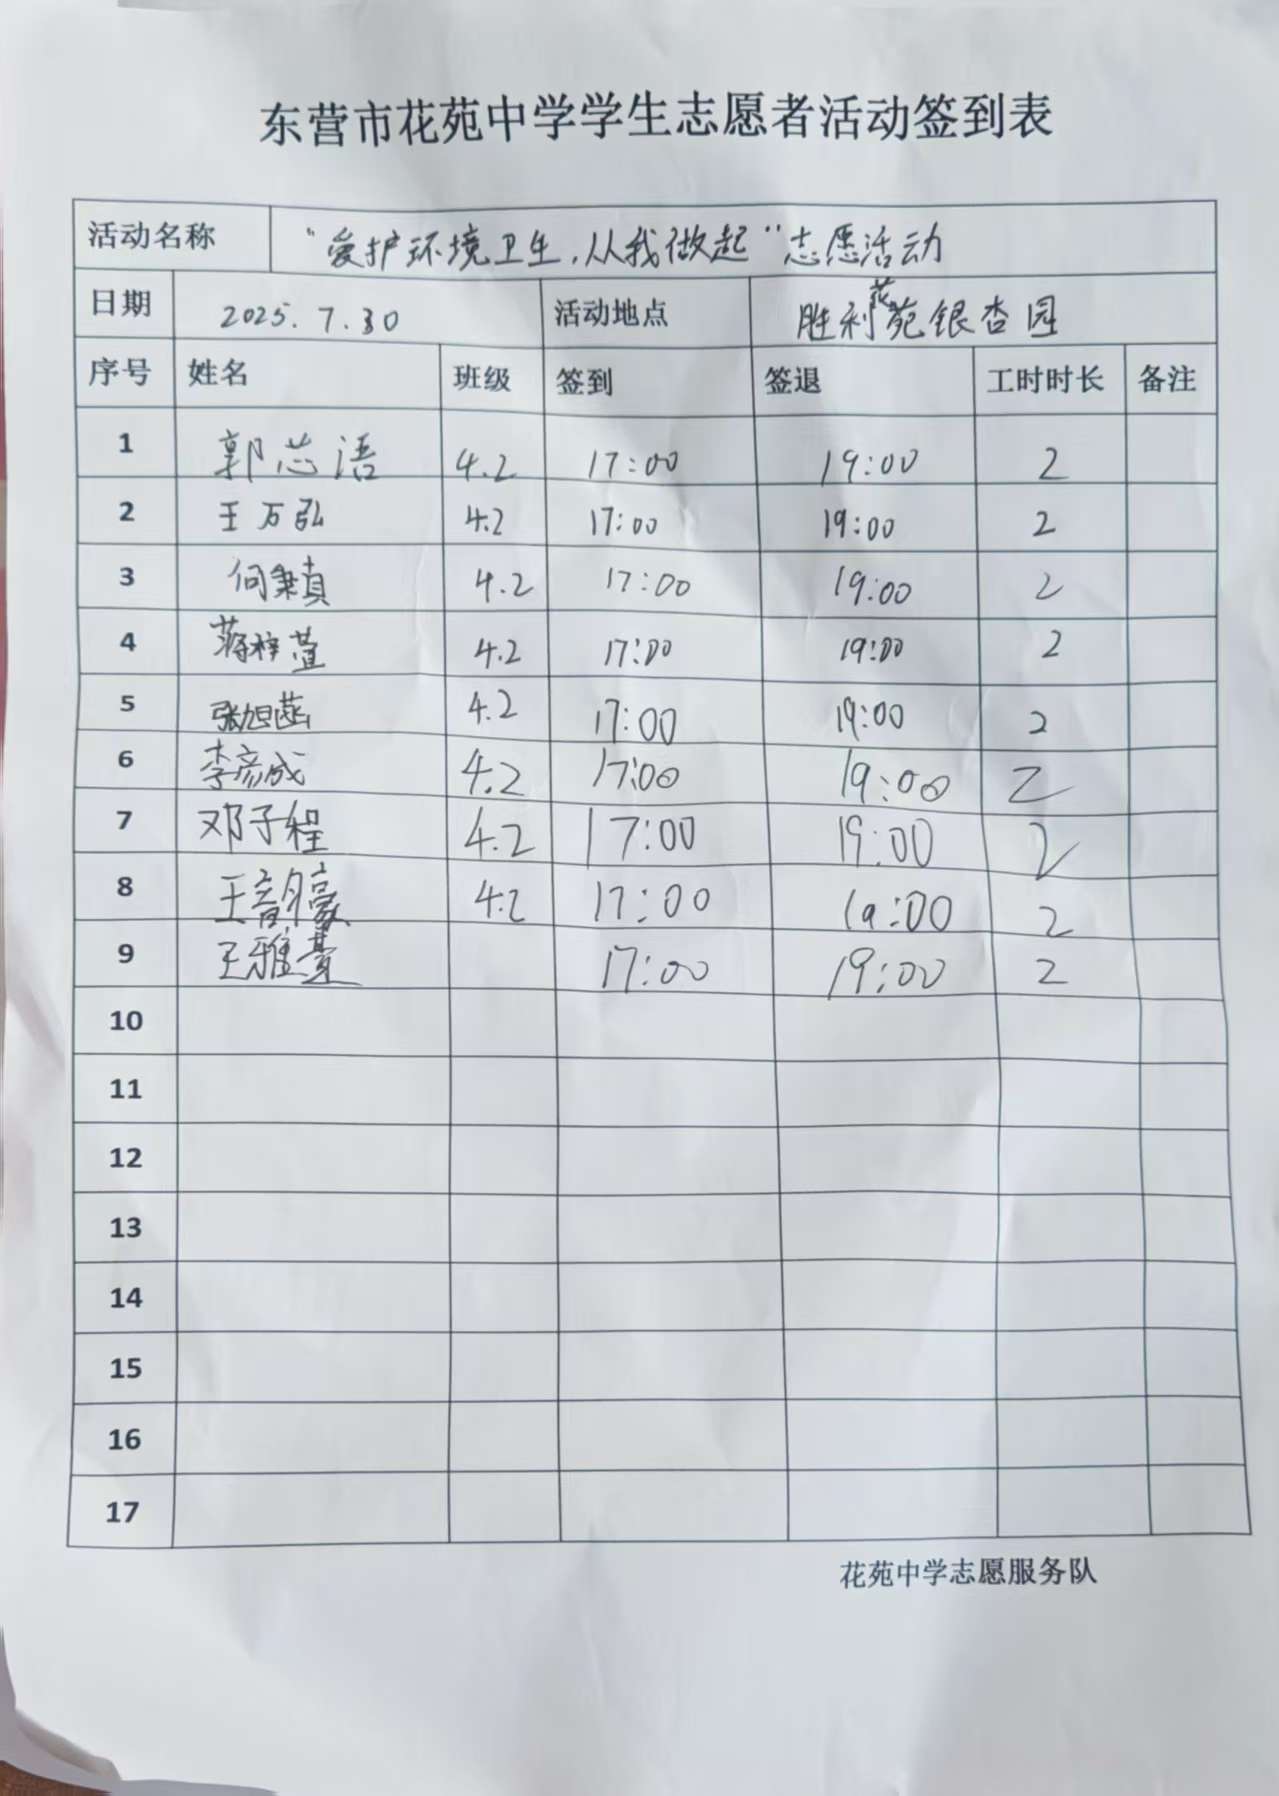 东营市花苑中学学生志愿者活动签到表
活动名称 “爱护环境卫生,从我做起”志愿活动
日期 2025.7.30 活动地点 胜利花苑银杏园
序号 姓名 班级 签到 签退 工时时长 备注
1 郭芯语 4.2 17:00 19:00 2
2 王万弘 4.2 17:00 19:00 2
3 何秉真 4.2 17:00 19:00 2
4 蒋梓萱 4.2 17:00 19:00 2
5 张旭菡 4.2 17:00 19:00 2
6 李彦成 4.2 17:00 19:00 2
7 邓子程 4.2 17:00 19:00 2
8 王 4.2 17:00 19:00 2
9 王雅 17:00 19:00 2
10
11
12
13
14
15
16
17
花苑中学志愿服务队